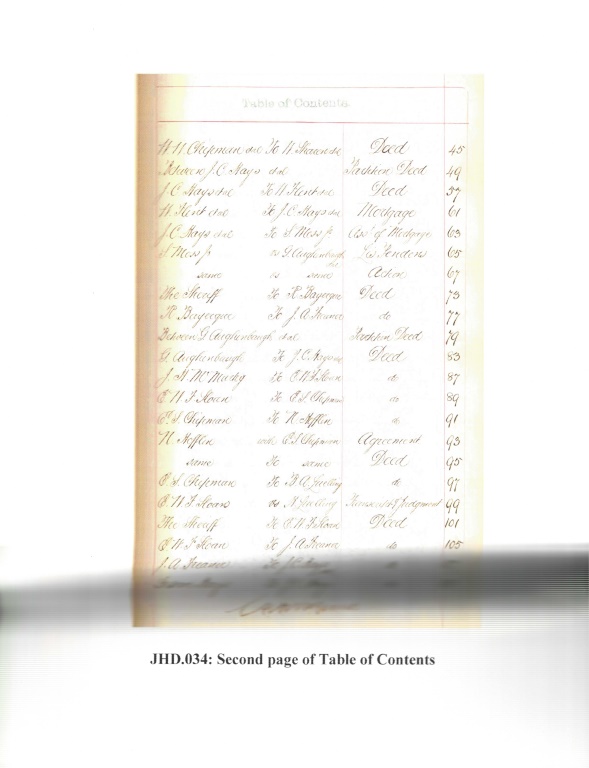 Table of Contents.
H. H. Chipman et al To H. Steven et al Deed 45
Between J. C. Hays et al Partition Deed 49
J. C. Hays et al To H. Hent et al Deed 57
H. Hent et al To J. C. Hays et al Mortgage 61
J. C. Hays et al To S. Moss Jr Ass't of Mortgage 63
S. Moss Jr vs D. Aughenbaugh et al Lis Pendens 65
same vs same Action 67
The Sheriff To R. Bayerque Deed 73
R. Bayerque To J. A. Freaner do 77
Between D. Aughenbaugh et al Partition Deed 79
D. Aughenbaugh To J. C. Hays et al Deed 83
J. H. McMurky To E. W. F. Sloan do 87
E. W. F. Sloan To E. S. Chipman do 89
E. S. Chipman To N. Hofflin do 91
N. Hofflin with E. S. Chipman Agreement 93
same To same Deed 95
E. S. Chipman To B. A. do 97
E. W. F. Sloan vs Transcript of Judgement 99
The Sheriff To E. W. F. Sloan Deed 101
E. W. F. Sloan To J. A. Freaner do 105
J. A. Freaner To J. C. Hays
JHD.034: Second page of Table of Contents